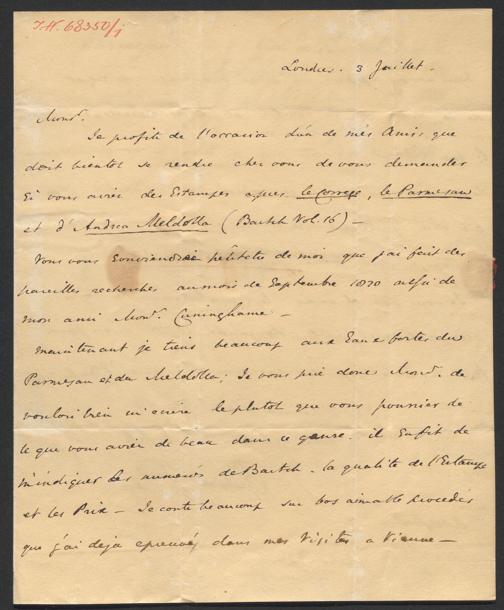 I.H. 68350/1
Londres. 3 Juillet.
Monsr.
Je profite de l'occasion d'un de mes Amis que
doit bientot se rendre chez vous de vous demander
si vous aviez des Estampes apres le Correge, le Parmesan
et d'Andrea Meldolla (Bartsch Vol. 16) —
Vous vous souviendrez peutetre de moi que j'ai fait des
pareilles recherches au mois de Septembre 1820 de
mon ami Monsr. Cuninghame —
maintenant je tiens beaucoup aux Eaux fortes du
Parmesan et du Meldolla; Je vous prie donc Monsr. de
vouloir bien m'ecrire le plutot que vous pourriez de
ce que vous aviez de beau dans ce genre. il suffit de
m'indiquer les numeros de Bartsch. la qualité de l'Estampe
et les Prix — Je conte beaucoup sur vos aimable procedes
que j'ai deja eprouvés dans mes Visites a Vienne —